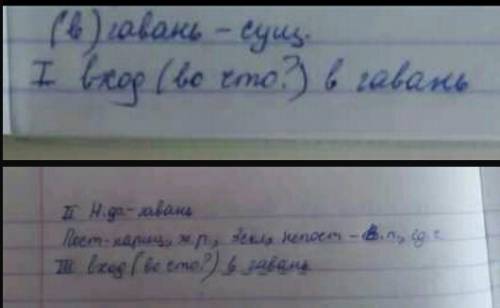 (в) гавань - сущ.
I вход (во что?) в гавань
II Н.ф.- гавань
Пост.- нариц., ж.р., 3скл., непост - В.п., ед.ч.
III вход (во что?) в гавань